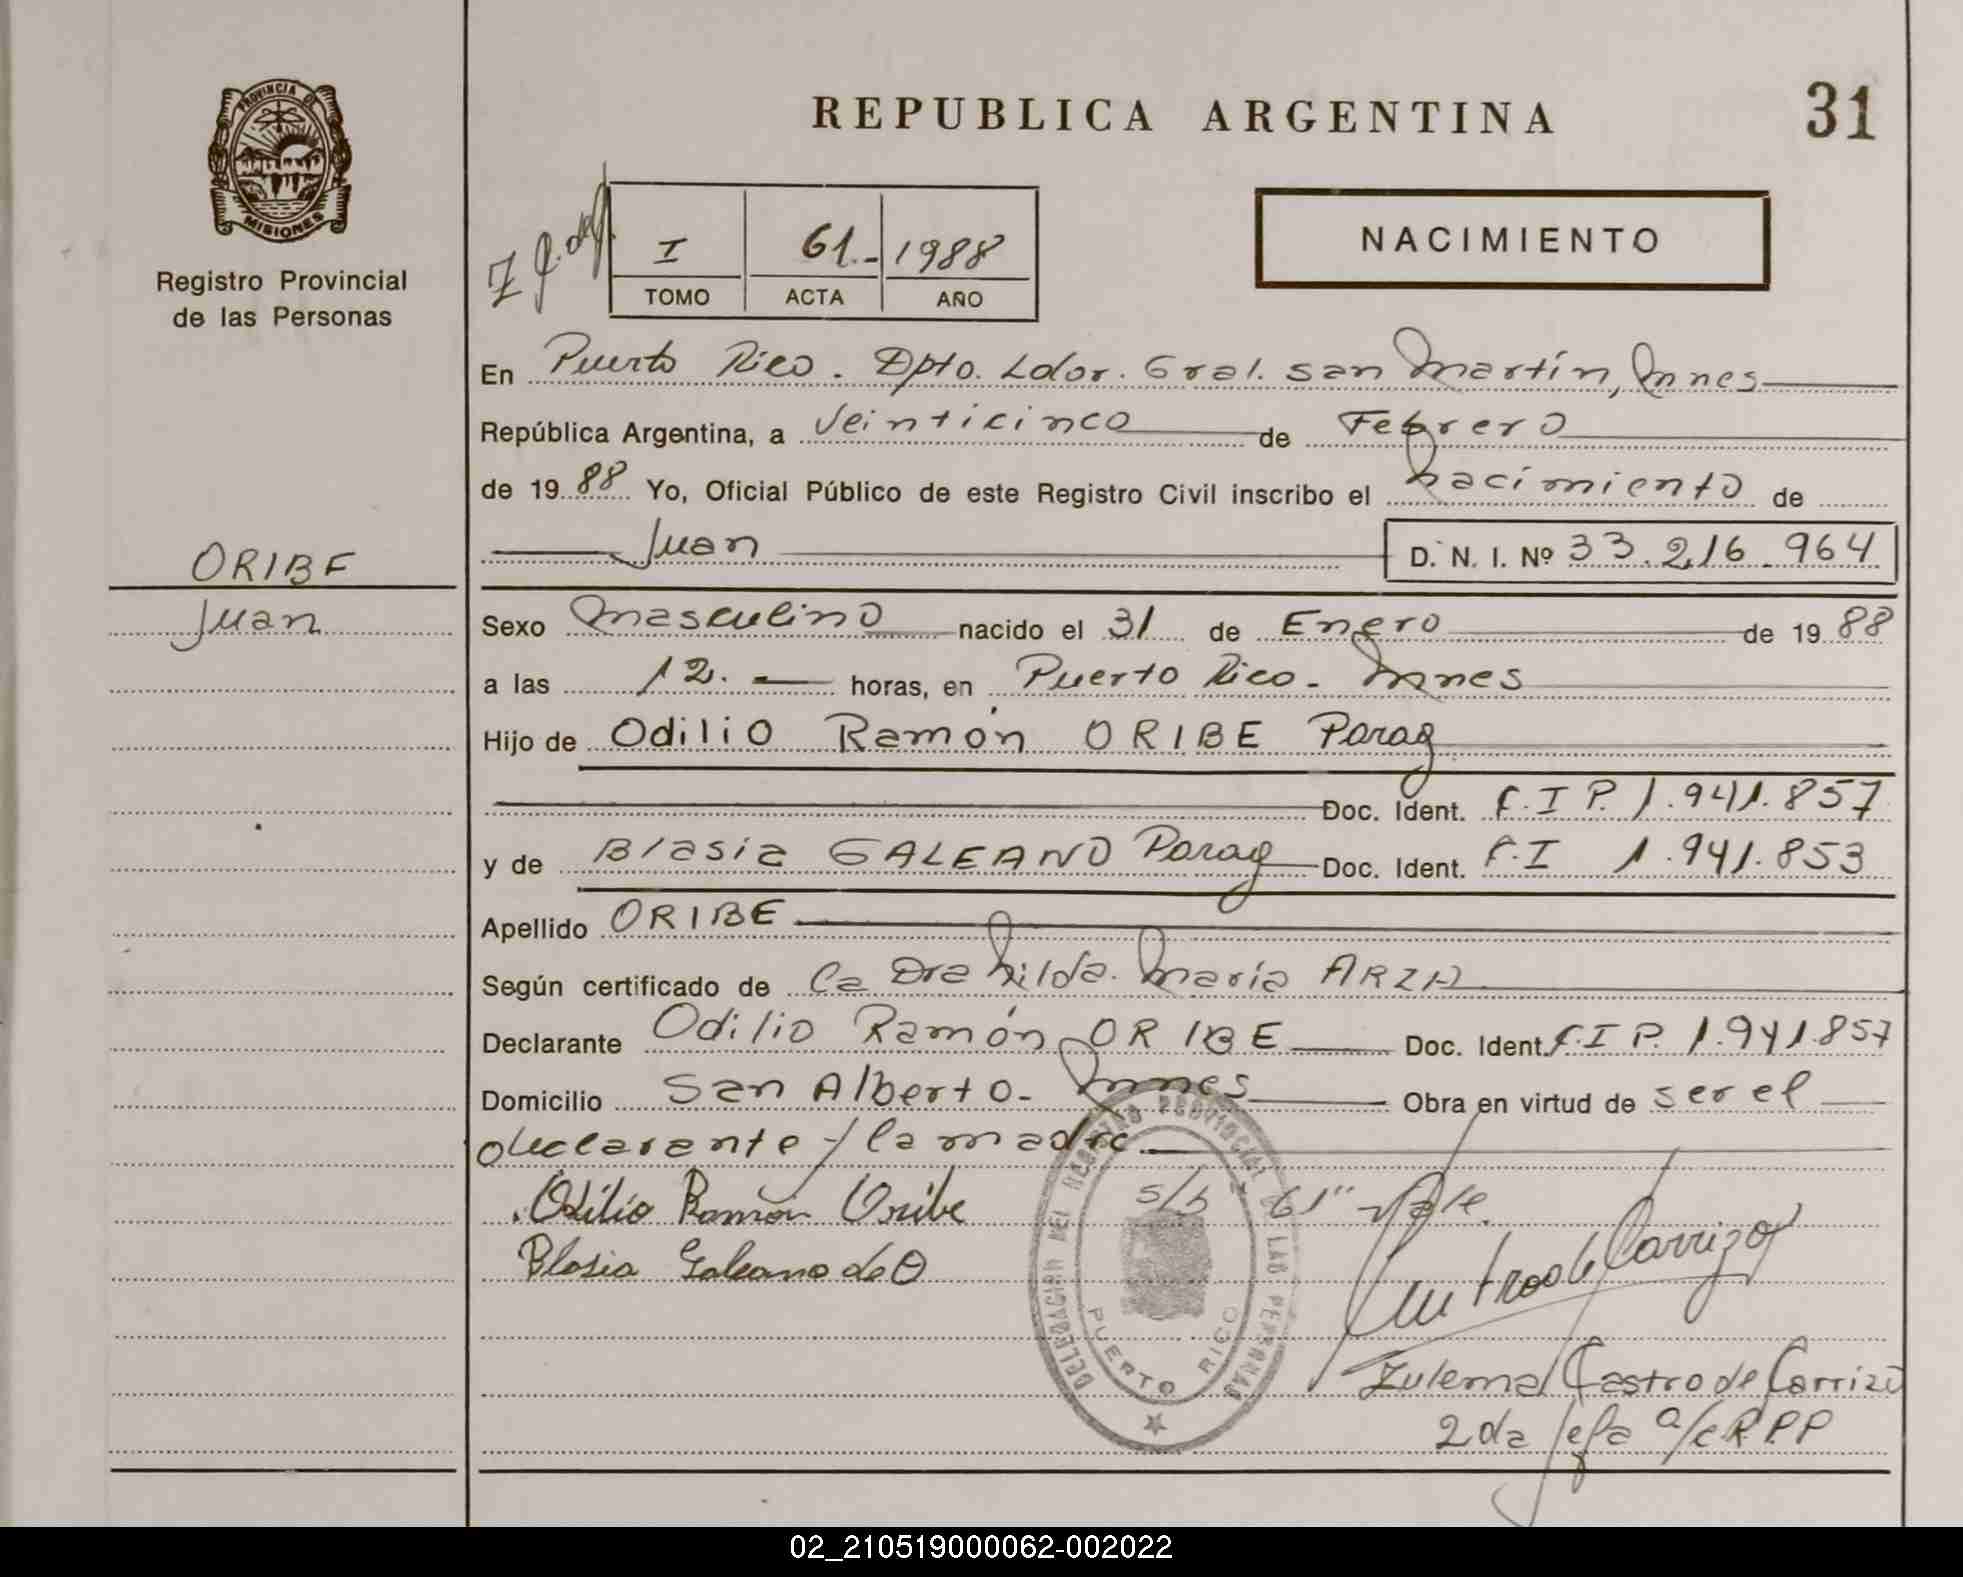 PROVINCIA DE
MISIONES
Registro Provincial
de las Personas
REPUBLICA ARGENTINA
31
I 61.- 1988
TOMO ACTA AÑO
NACIMIENTO
En Puerto Rico. Dpto. Ldor. Gral. San Martín, Mnes
República Argentina, a Veinticinco de Febrero
de 1988 Yo, Oficial Público de este Registro Civil inscribo el nacimiento de
Juan D. N. I. Nº 33.216.964
ORIBE
Juan
Sexo masculino nacido el 31 de Enero de 1988
a las 12. — horas, en Puerto Rico. Mnes
Hijo de Odilio Ramón ORIBE Parag
Doc. Ident. C.I P. 1.941.857
y de Blasia GALEANO Parag Doc. Ident. C.I 1.941.853
Apellido ORIBE
Según certificado de la Dra Nilda. María ARZA
Declarante Odilio Ramón ORIBE Doc. Ident. C.I P. 1.941.857
Domicilio San Alberto- Mnes Obra en virtud de ser el
declarante y la madre.
Odilio Ramón Oribe s/b 61" Vale.
Blasia Galeano de O
Castro de Carrizo
DELEGACION DEL REGISTRO PROVINCIAL DE LAS PERSONAS
PUERTO RICO
Zulema Castro de Carrizo
2da Jefa a/c R.P.P
02_210519000062-002022